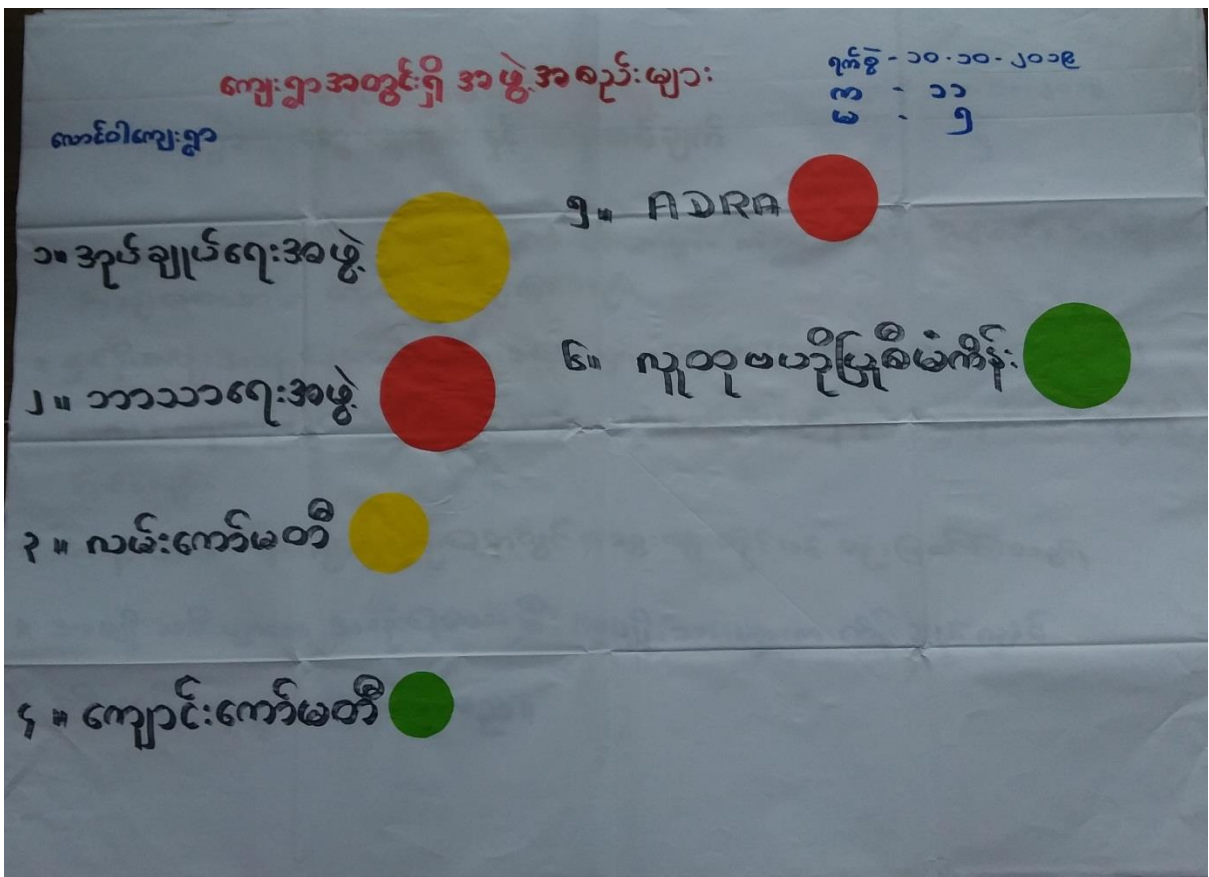 ကျေးရွာအတွင်းရှိ အဖွဲ့အစည်းများ
ရက်စွဲ - ၁၀-၁၀-၂၀၁၉
ကျ - ၁၁
မ - ၅
လောင်ဝါကျေးရွာ
၁။ အုပ်ချုပ်ရေးအဖွဲ့
၂။ ဘာသာရေးအဖွဲ့
၃။ လမ်းကော်မတီ
၄။ ကျောင်းကော်မတီ
၅။ ADRA
၆။ လူထုဗဟိုပြုစီမံကိန်း